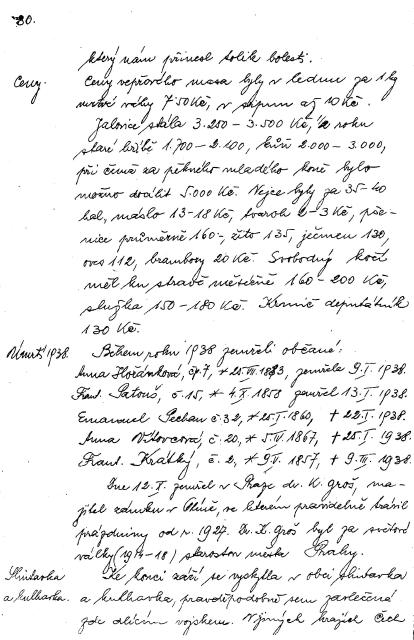 80.
který nám přinesl tolik bolesti.
Ceny. Ceny vepřového masa byly v lednu za 1 kg
mrtvé váhy 7'50 Kč, v srpnu až 10 Kč.
Jalovice stála 3.250 – 3.500 Kč, roku
staré hříbě 1.700 – 2.400, kůň 2.000 – 3.000,
při čemž za pěkného mladého koně bylo
možno docílit 5.000 Kč. Vejce byly za 35 – 40
hal, máslo 13 – 18 Kč, tvaroh 2 – 3 Kč, pše-
nice průměrně 160 -, žito 135, ječmen 130,
oves 112, brambory 20 Kč. Svobodný kočí
měl ku stravě měsíčně 160 – 200 Kč,
služka 150 – 180 Kč. Krmič deputátník
130 Kč.
Úmrtí 1938. Během roku 1938 zemřeli občané:
Anna čp. 7, * 25. 1883, zemřela 9. I. 1938.
Frant. č. 15, * 4. X. 1858 zemřel 13. I. 1938.
Emanuel Pechan č. 32, * 25. I. 1860, + 22. I. 1938.
Anna č. 20, * 5. IV. 1867, + 25. I. 1938.
Frant. Krátký, č. 2, * 9. V. 1857, + 9. 1938.
Dne 12. I. zemřel v Praze dr. K. Groš, ma-
jitel zámku v, ve kterém pravidelně trávil
prázdniny od r. 1927. Dr. K. Groš byl za světové
války (1914 – 18) starostou města Prahy.
Slintavka Ke konci září se vyskytla v obci slintavka
a kulhavka. a kulhavka, pravděpodobně sem zavlečená
zde dlícím vojskem. V jiných krajích Čech